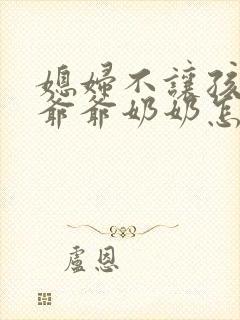 媳婦不讓孩
爺爺奶奶怎
盧恩